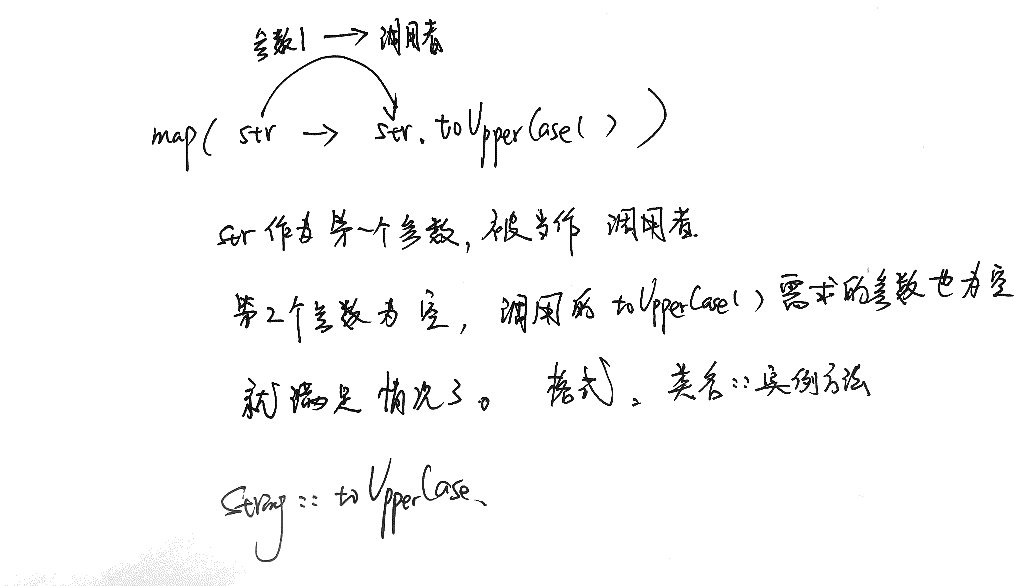 参数1 → 调用者
map( str → str.toUpperCase( ) )
str作为第一个参数,被当作 调用者.
第2个参数为空, 调用的toUpperCase( )需求的参数也为空
就满足情况3。 格式、类名::实例方法
String::toUpperCase、